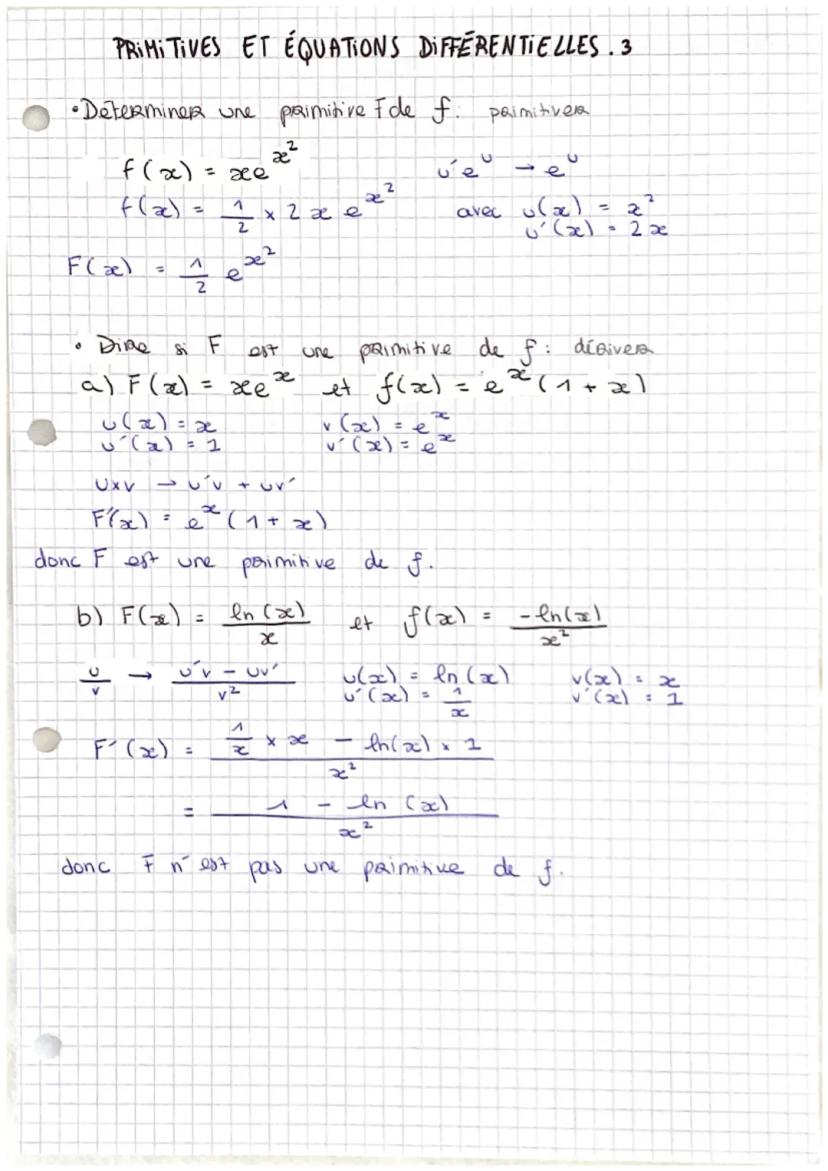 PRIMITIVES ET ÉQUATIONS DIFFÉRENTIELLES . 3
• Déterminer une primitive F de f : primitiver
f(x) = xe^{x²} u'e^u → e^u
f(x) = 1/2 × 2x e^{x²} avec u(x) = x²
u'(x) = 2x
F(x) = 1/2 e^{x²}
• Dire si F est une primitive de f : dériver
a) F(x) = xe^x et f(x) = e^x(1 + x)
u(x) = x v(x) = e^x
u'(x) = 1 v'(x) = e^x
u×v → u'v + uv'
F'(x) = e^x(1 + x)
donc F est une primitive de f.
b) F(x) = ln(x)/x et f(x) = -ln(x)/x²
u/v → (u'v - uv')/v² u(x) = ln(x) v(x) = x
u'(x) = 1/x v'(x) = 1
F'(x) = (1/x × x - ln(x) × 1)/x²
= (1 - ln(x))/x²
donc F n'est pas une primitive de f.